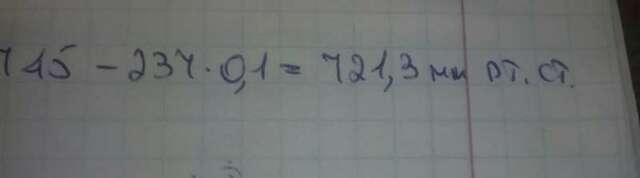 745 - 237 · 0,1 = 721,3 мм рт. ст.